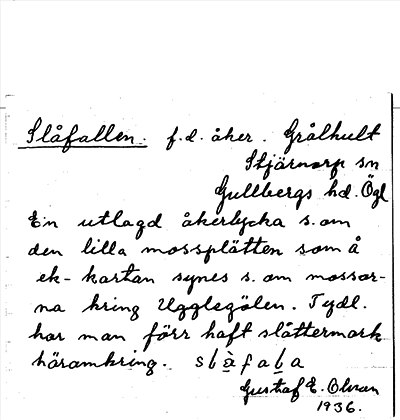 Slåfallen. f.d. åker. Grålhult
Stjärnorp sn
Gullbergs hd. Ögl
En utlagd åkerlycka s.om
den lilla mossplätten som å
ek-kartan synes s.om mossar-
na kring Ugglegölen. Tydl.
har man förr haft slåttermark
häromkring. slåfala
Gustaf E. Olsson
1936.